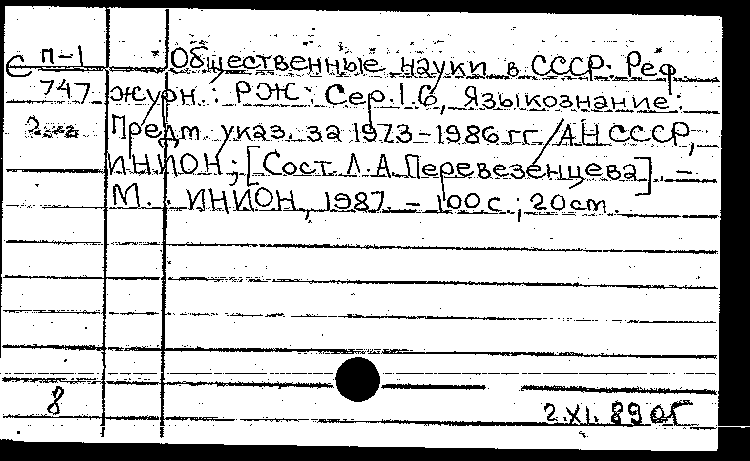 С П-1 Общественные науки в СССР. Реф.
747 журн.: РЖ: Сер. 1. 6, Языкознание:
Предм. указ. за 1973-1986 гг. / АН СССР,
ИНИОН; [Сост. Л. А. Перевезенцева]. -
М.: ИНИОН, 1987. - 100 с.; 20 см.
8
2.XI.89